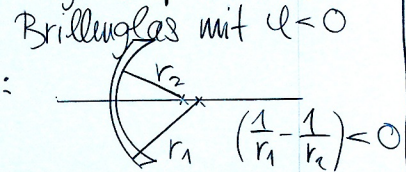 Brillenglas mit φ < 0
:
r₂
r₁ (1/r₁ - 1/r₂) < 0